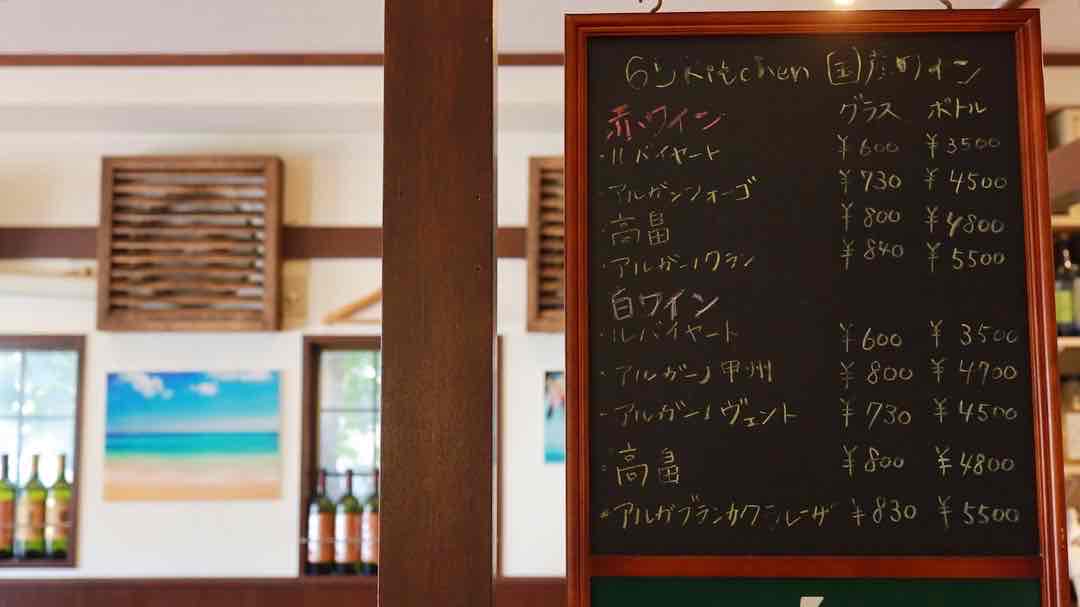 6's Kitchen 国産ワイン
赤ワイン グラス ボトル
・ルバイヤート ¥600 ¥3500
・アルガーノフォーゴ ¥730 ¥4500
・高畠 ¥800 ¥4800
・アルガーノグラン ¥840 ¥5500
白ワイン
・ルバイヤート ¥600 ¥3500
・アルガーノ甲州 ¥800 ¥4700
・アルガーノヴェント ¥730 ¥4500
・高畠 ¥800 ¥4800
・アルガブランカクラレーザ ¥830 ¥5500